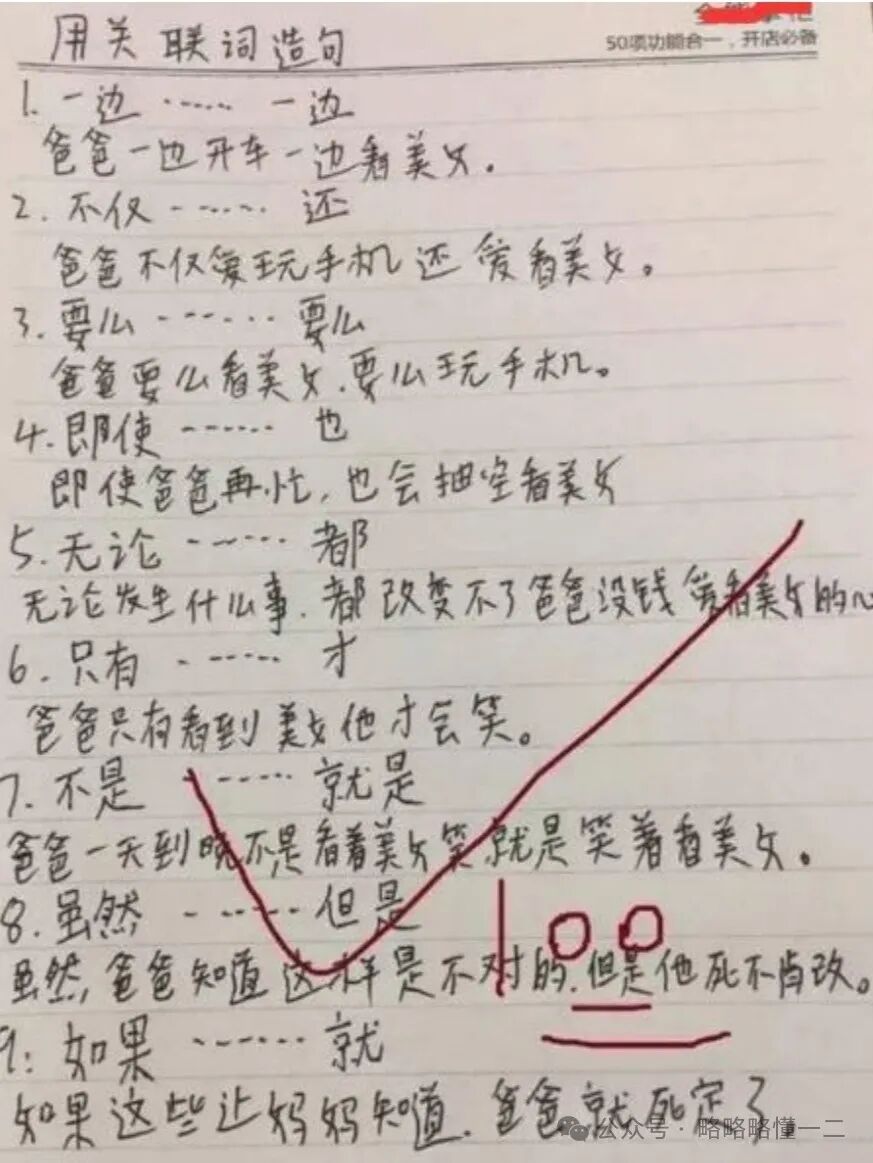 50项功能合一，开店必备
用关联词造句
1. 一边 …… 一边
爸爸一边开车一边看美女.
2. 不仅 …… 还
爸爸不仅爱玩手机还爱看美女。
3. 要么 …… 要么
爸爸要么看美女.要么玩手机。
4. 即使 …… 也
即使爸爸再忙,也会抽空看美女
5. 无论 …… 都
无论发生什么事.都改变不了爸爸没钱爱看美女的心
6. 只有 …… 才
爸爸只有看到美女他才会笑。
7. 不是 …… 就是
爸爸一天到晚不是看着美女笑就是笑着看美女。
8. 虽然 …… 但是
虽然,爸爸知道这样是不对的.但是他死不肯改。
100
9: 如果 …… 就
如果这些让妈妈知道.爸爸就死定了
公众号·略略略懂一二